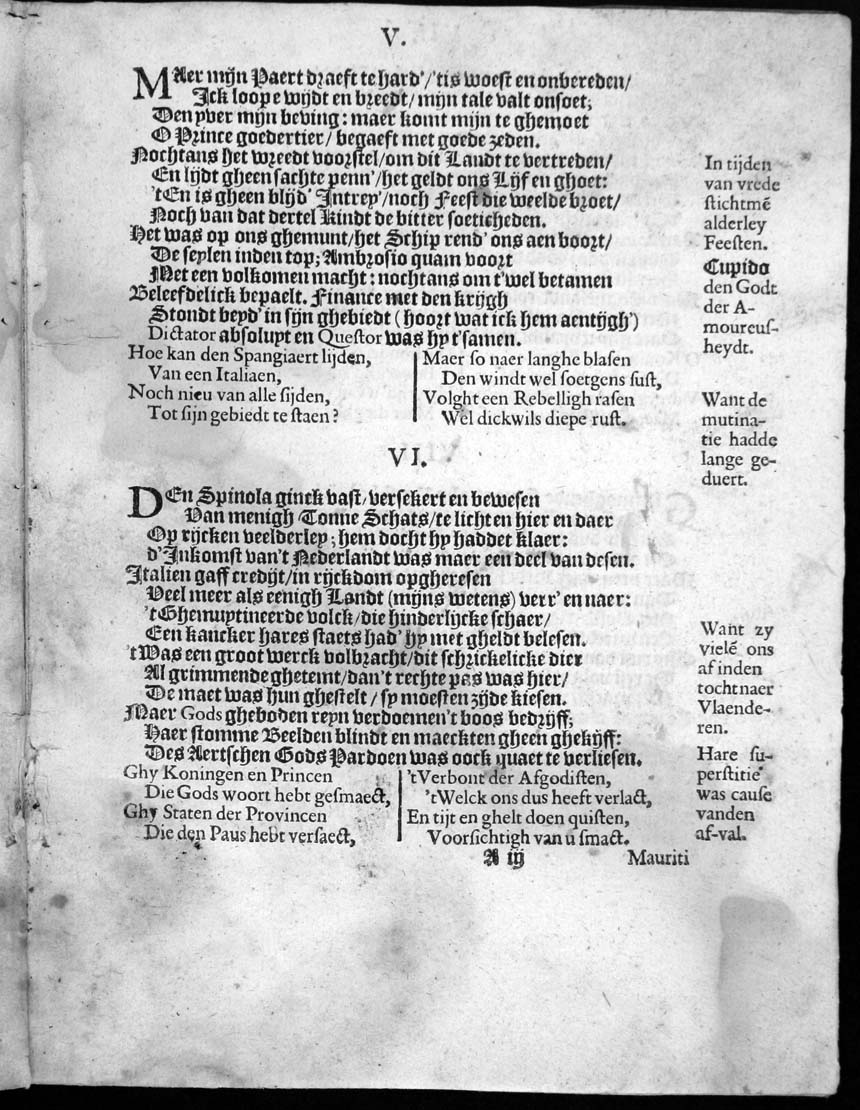 V.
MAer mijn Paert draeft te hard'/'tis woest en onbereden/
Ick loope wijdt en breedt/ mijn tale valt onsoet;
Den yver mijn beving: maer komt mijn te ghemoet
O Prince goedertier/ begaeft met goede zeden.
Nochtans het wreedt voorstel/om dit Landt te vertreden/
En lijdt gheen sachte penn'/het geldt ons Lijf en ghoet:
'tEn is gheen blijd' Intrey/noch Feest die weelde broet/
Noch van dat dertel kindt de bitter soeticheden.
Het was op ons ghemunt/het Schip rend' ons aen boort/
De seylen inden top; Ambrosio quam voort
Met een volkomen macht: nochtans om t'wel betamen
Beleefdelick bepaelt. Finance met den krijgh
Stondt beyd' in sijn ghebiedt (hoort wat ick hem aentijgh')
Dictator absolupt en Questor was hy t'samen.
In tijden
van vrede
stichtmē
alderley
Feesten.
Cupido
den Godt
der A-
moureus-
heydt.
Hoe kan den Spangiaert lijden,
Van een Italiaen,
Noch nieu van alle sijden,
Tot sijn gebiedt te staen?
Maer so naer langhe blasen
Den windt wel soetgens sust,
Volght een Rebelligh rasen
Wel dickwils diepe rust.
Want de
mutina-
tie hadde
lange ge-
duert.
VI.
DEn Spinola ginck vast/versekert en bewesen
Van menigh Tonne Schats/te lichten hier en daer
Op rijcken veelderley; hem docht hy haddet klaer:
d'Inkomst van't Nederlandt was maer een deel van desen.
Italien gaff credijt/in rijckdom opgheresen
Veel meer als eenigh Landt (mijns wetens) verr' en naer:
'tGhemuytineerde volck/die hinderlijcke schaer/
Een kancker hares staets had' hy met gheldt belesen.
'tWas een groot werck volbracht/dit schrickelicke dier
Al grimmende ghetemt/dan't rechte pas was hier/
De maet was hun ghestelt/ sy moesten zijde kiesen.
Maer Gods gheboden reyn verdoemen't boos bedrijff;
Haer stomme Beelden blindt en maeckten gheen ghekijff:
Des Aertschen Gods Pardoen was oock quaet te verliesen.
Want zy
vielē ons
af inden
tocht naer
Vlaende-
ren.
Hare su-
perstitie
was cause
vanden
af-val.
Ghy Koningen en Princen
Die Gods woort hebt gesmaect,
Ghy Staten der Provincen
Die den Paus hebt versaect,
'tVerbont der Afgodisten,
'tWelck ons dus heeft verlact,
En tijt en ghelt doen quisten,
Voorsichtigh van u smact.
A iij
Mauriti